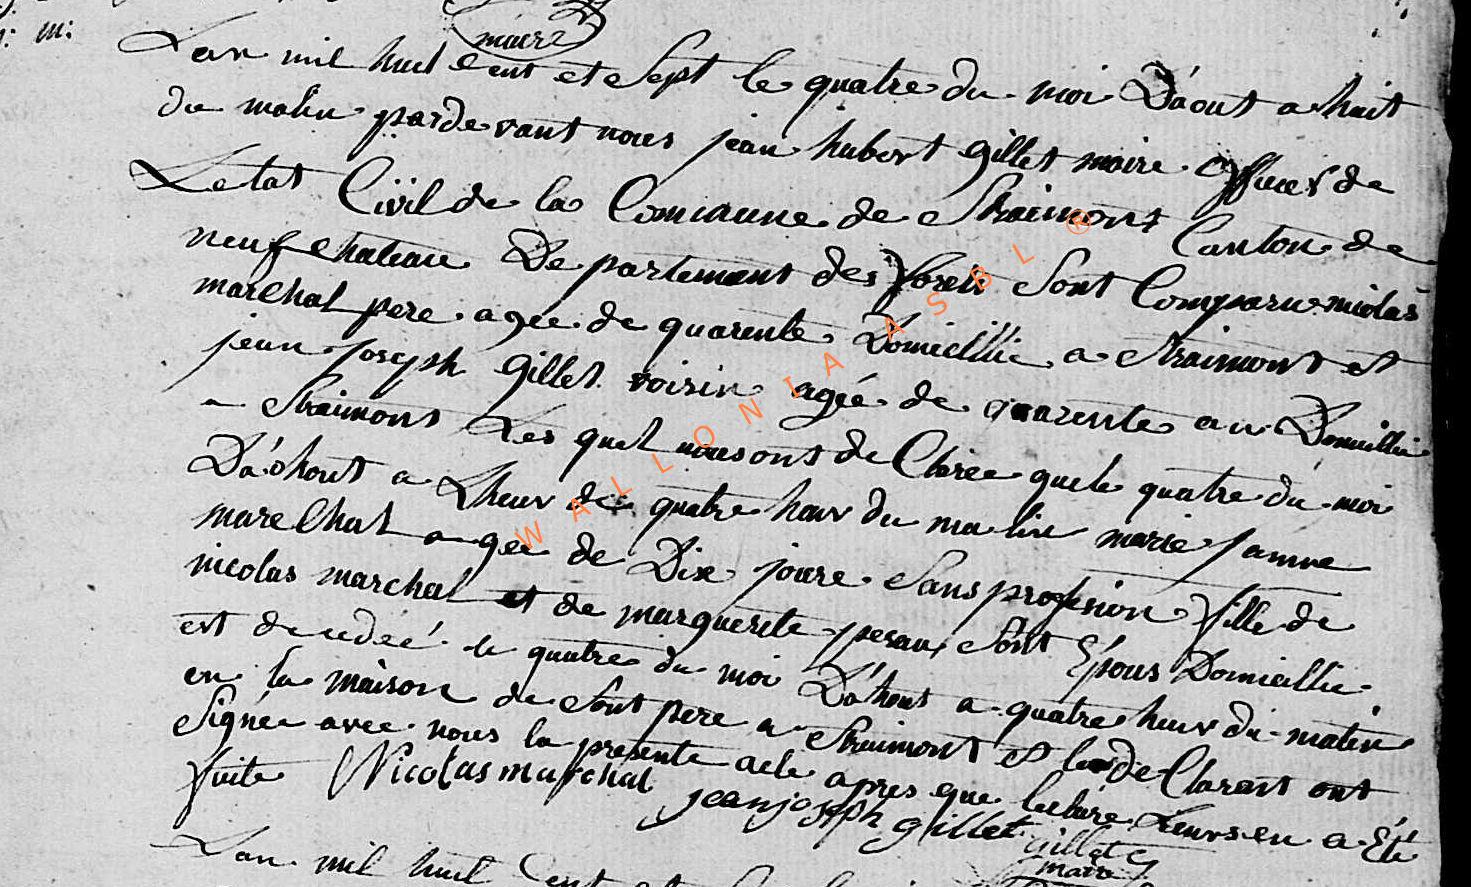 maire
L'an mil huit cent et Sept le quatre du moi D'aout a huit
du matin pardevant nous jean hubert gillet maire officier de
Letat Civil de la Commune de Straimont Canton de
neufchateau Departement des forets Sont Comparu nicolas
marchal pere agee de quarente Domicillie a Straimont et
jean joseph gillet voisin agée de quarente an Domicillie
a Straimont Les quel nous ont de Claree que le quatre du moi
Da'ohout a Lheur de quatre heur du matin marie janne
marechal agee de Dix jours Sans profesion fille de
nicolas marchal et de marguerite pesaux Sont Epous Domicillie
est decedeé le quatre du moi Da'hout a quatre heur du matin
en la maison de Sont pere a Straimont et les de Clarant ont
Signée avec nous la presente acte apres que lecture Leurs en a Eté
fuite Nicolas marchal
jean joseph gillet
gillet
maire
L'an mil huit Cent et
WALLONIA ASBL ®